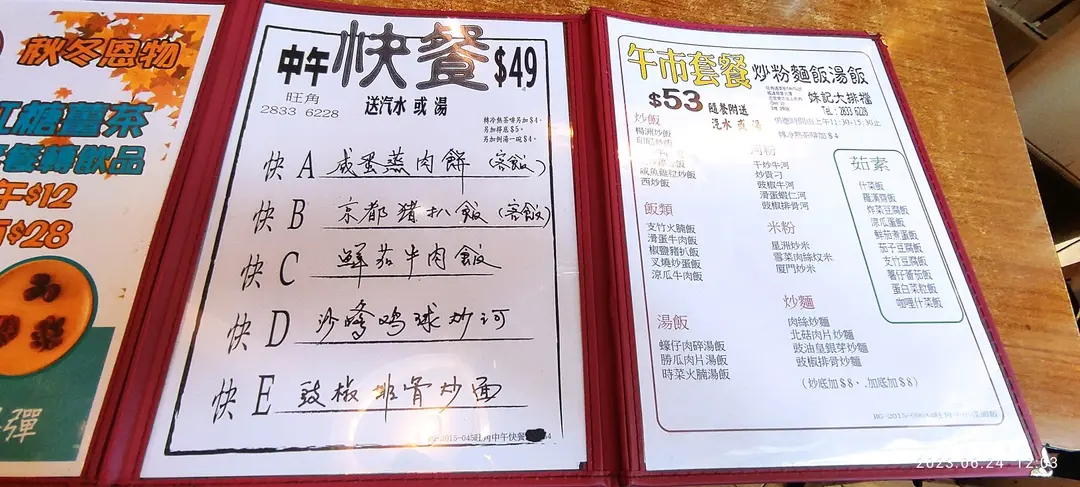 秋冬恩物
紅糖薑茶
$12
$28
中午快餐$49
旺角
2833 6228
送汽水 或 湯
轉冷熱茶啡另加$4.
另加得惠$5。
另加例湯一碗$4.
快 A 咸蛋蒸肉餅(客飯)
快 B 京都猪扒飯(客飯)
快 C 鮮茄牛肉飯
快 D 沙嗲鸡球炒河
快 E 豉椒排骨炒面
午市套餐
炒粉麵飯湯飯
$53
隨餐附送
汽水 或 湯
妹記大排檔
TEL: 2833 6228
上午11:30-15:30止
轉冷熱茶啡加$4
炒飯
楊洲炒飯
咸魚雞粒炒飯
西炒飯
飯類
支竹火腩飯
滑蛋牛肉飯
椒鹽豬扒飯
叉燒炒蛋飯
涼瓜牛肉飯
湯飯
蠔仔肉碎湯飯
勝瓜肉片湯飯
時菜火腩湯飯
河粉
干炒牛河
炒貴刁
豉椒牛河
滑蛋蝦仁河
豉椒排骨河
米粉
星洲炒米
雪菜肉絲炆米
廈門炒米
炒麵
肉絲炒麵
北菇肉片炒麵
豉油皇銀芽炒麵
豉椒排骨炒麵
(炒底加$8、.加底加$8)
茹素
什菜飯
羅漢齋飯
炸菜豆腐飯
涼瓜蛋飯
鮮茄煮蛋飯
茄子豆腐飯
支竹豆腐飯
薯仔番茄飯
蛋白菜粒飯
咖喱什菜飯
2023.06.24 12:03